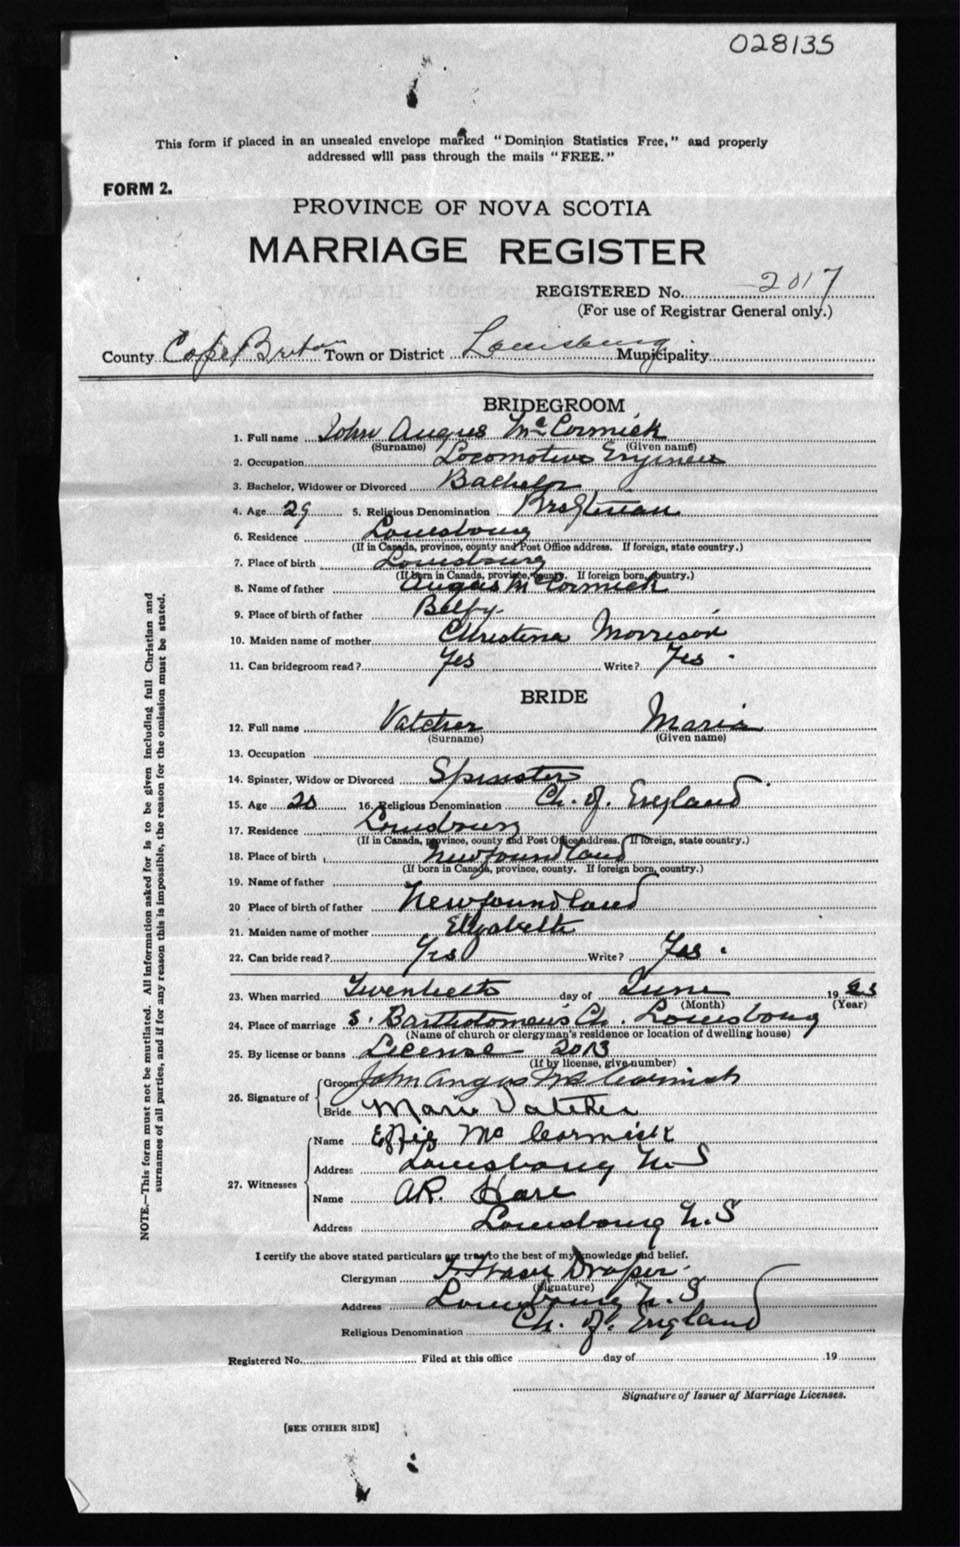 028135
This form if placed in an unsealed envelope marked "Dominion Statistics Free," and properly
addressed will pass through the mails "FREE."
FORM 2.
PROVINCE OF NOVA SCOTIA
MARRIAGE REGISTER
REGISTERED No. 2017
(For use of Registrar General only.)
County Cape Breton Town or District Louisburg Municipality
BRIDEGROOM
1. Full name John Angus McCormick
(Surname) (Given name)
2. Occupation Locomotive Engineer
3. Bachelor, Widower or Divorced Bachelor
4. Age 29 5. Religious Denomination
6. Residence Louisbourg
(If in Canada, province, county and Post Office address. If foreign, state country.)
7. Place of birth Louisbourg
(If born in Canada, province, county. If foreign born, country.)
8. Name of father Angus McCormick
9. Place of birth of father
10. Maiden name of mother Christina Morrison
11. Can bridegroom read? Yes Write? Yes.
BRIDE
12. Full name Vatcher Maria
(Surname) (Given name)
13. Occupation
14. Spinster, Widow or Divorced Spinster
15. Age 20 16. Religious Denomination Ch. of England
17. Residence Louisbourg
(If in Canada, province, county and Post Office address. If foreign, state country.)
18. Place of birth Newfoundland
(If born in Canada, province, county. If foreign born, country.)
19. Name of father
20 Place of birth of father Newfoundland
21. Maiden name of mother Elizabeth
22. Can bride read? Yes Write? Yes.
23. When married Twentieth day of June 19
(Month) (Year)
24. Place of marriage S. Bartholomew's Ch. Louisbourg
(Name of church or clergyman's residence or location of dwelling house)
25. By license or banns License 2013
(If by license, give number)
26. Signature of
Groom John Angus McCormick
Bride Marie Vatcher
27. Witnesses
Name Effie McCormick
Address Louisbourg N.S
Name A.R. Hare
Address Louisbourg N.S
I certify the above stated particulars are true to the best of my knowledge and belief.
Clergyman Draper.
(Signature)
Address Louisbourg N.S
Religious Denomination Ch. of England
Registered No. Filed at this office day of 19
Signature of Issuer of Marriage Licenses.
[SEE OTHER SIDE]
NOTE.—This form must not be mutilated. All information asked for is to be given including full Christian and
surnames of all parties, and if for any reason this is impossible, the reason for the omission must be stated.